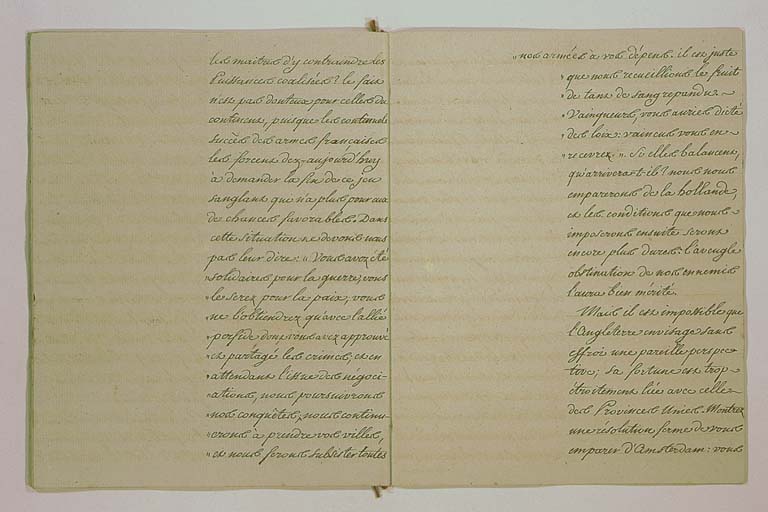 les maitres d'y contraindre les
Puissances coalisées? le fait
n'est pas douteux pour celles du
continent, puisque les continuels
succès des armes françaises
les forcent dez-aujourd'huy
à demander la fin de ce jeu
sanglant que n'a plus pour eux
de chances favorables. Dans
cette situation ne devons nous
pas leur dire: "Vous avez été
"solidaires pour la guerre, vous
"le serez pour la paix, vous
"ne l'obtiendrez qu'avec l'allié
"perfide dont vous avez approuvé
"et partagé les crimes; et en
"attendant l'issue des négoci-
"ations, nous poursuivrons
"nos conquêtes; nous continu-
"erons à prendre vos villes,
"et nous ferons subsister toutes
"nos armées à vos dépens. il est juste
"que nous recueillions le fruit
"de tant de sang repandu. ~
"Vainqueurs, vous auriez dicté
"des loix: vaincus vous en ~
"recevrez. ". Si elles balancent,
qu'arrivera-t-il? nous nous
emparerons de la hollande,
et les conditions que nous ~
imposerons ensuite seront
encore plus dures: l'aveugle
obstination de nos ennemis
l'aura bien mérité.
Mais il est impossible que
l'Angleterre envisage sans
effroi une pareille perspec-
tive; sa fortune est trop
étroitement liée avec celle ~
des Provinces Unies. Montrez
une résolution ferme de vous
emparer d'Amsterdam: vous